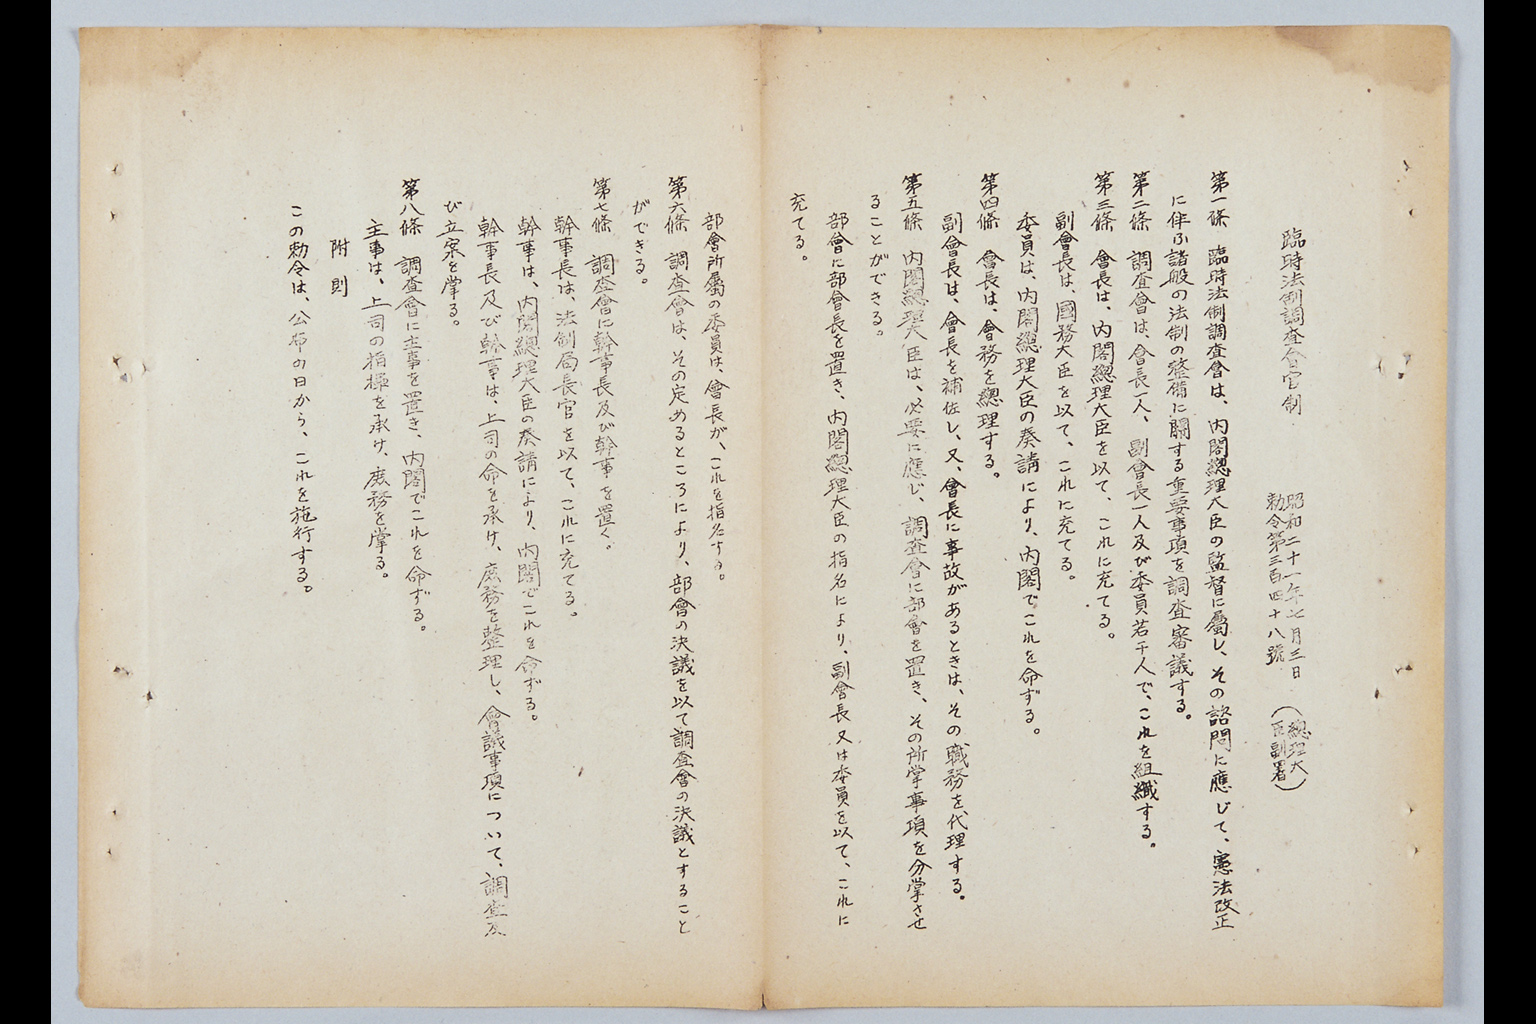 臨時法制調査會官制
昭和二十一年七月三日
勅令第三百四十八號
（總理大
臣副署）
第一條　臨時法制調査會は、内閣總理大臣の監督に屬し、その諮問に應じて、憲法改正
に伴ふ諸般の法制の整備に關する重要事項を調査審議する。
第二條　調査會は、會長一人、副會長一人及び委員若干人で、これを組織する。
第三條　會長は、内閣總理大臣を以て、これに充てる。
副會長は、國務大臣を以て、これに充てる。
委員は、内閣總理大臣の奏請により、内閣でこれを命ずる。
第四條　會長は、會務を總理する。
副會長は、會長を補佐し、又、會長に事故があるときは、その職務を代理する。
第五條　内閣總理大臣は、必要に應じ、調査會に部會を置き、その所掌事項を分掌させ
ることができる。
部會に部會長を置き、内閣總理大臣の指名により、副會長又は委員を以て、これに
充てる。
部會所屬の委員は、會長が、これを指名する。
第六條　調査會は、その定めるところにより、部會の決議を以て調査會の決議とすること
ができる。
第七條　調査會に幹事長及び幹事を置く。
幹事長は、法制局長官を以て、これに充てる。
幹事は、内閣總理大臣の奏請により、内閣でこれを命ずる。
幹事長及び幹事は、上司の命を承け、庶務を整理し、會議事項について、調査及
び立案を掌る。
第八條　調査會に主事を置き、内閣でこれを命ずる。
主事は、上司の指揮を承け、庶務を掌る。
附則
この勅令は、公布の日から、これを施行する。